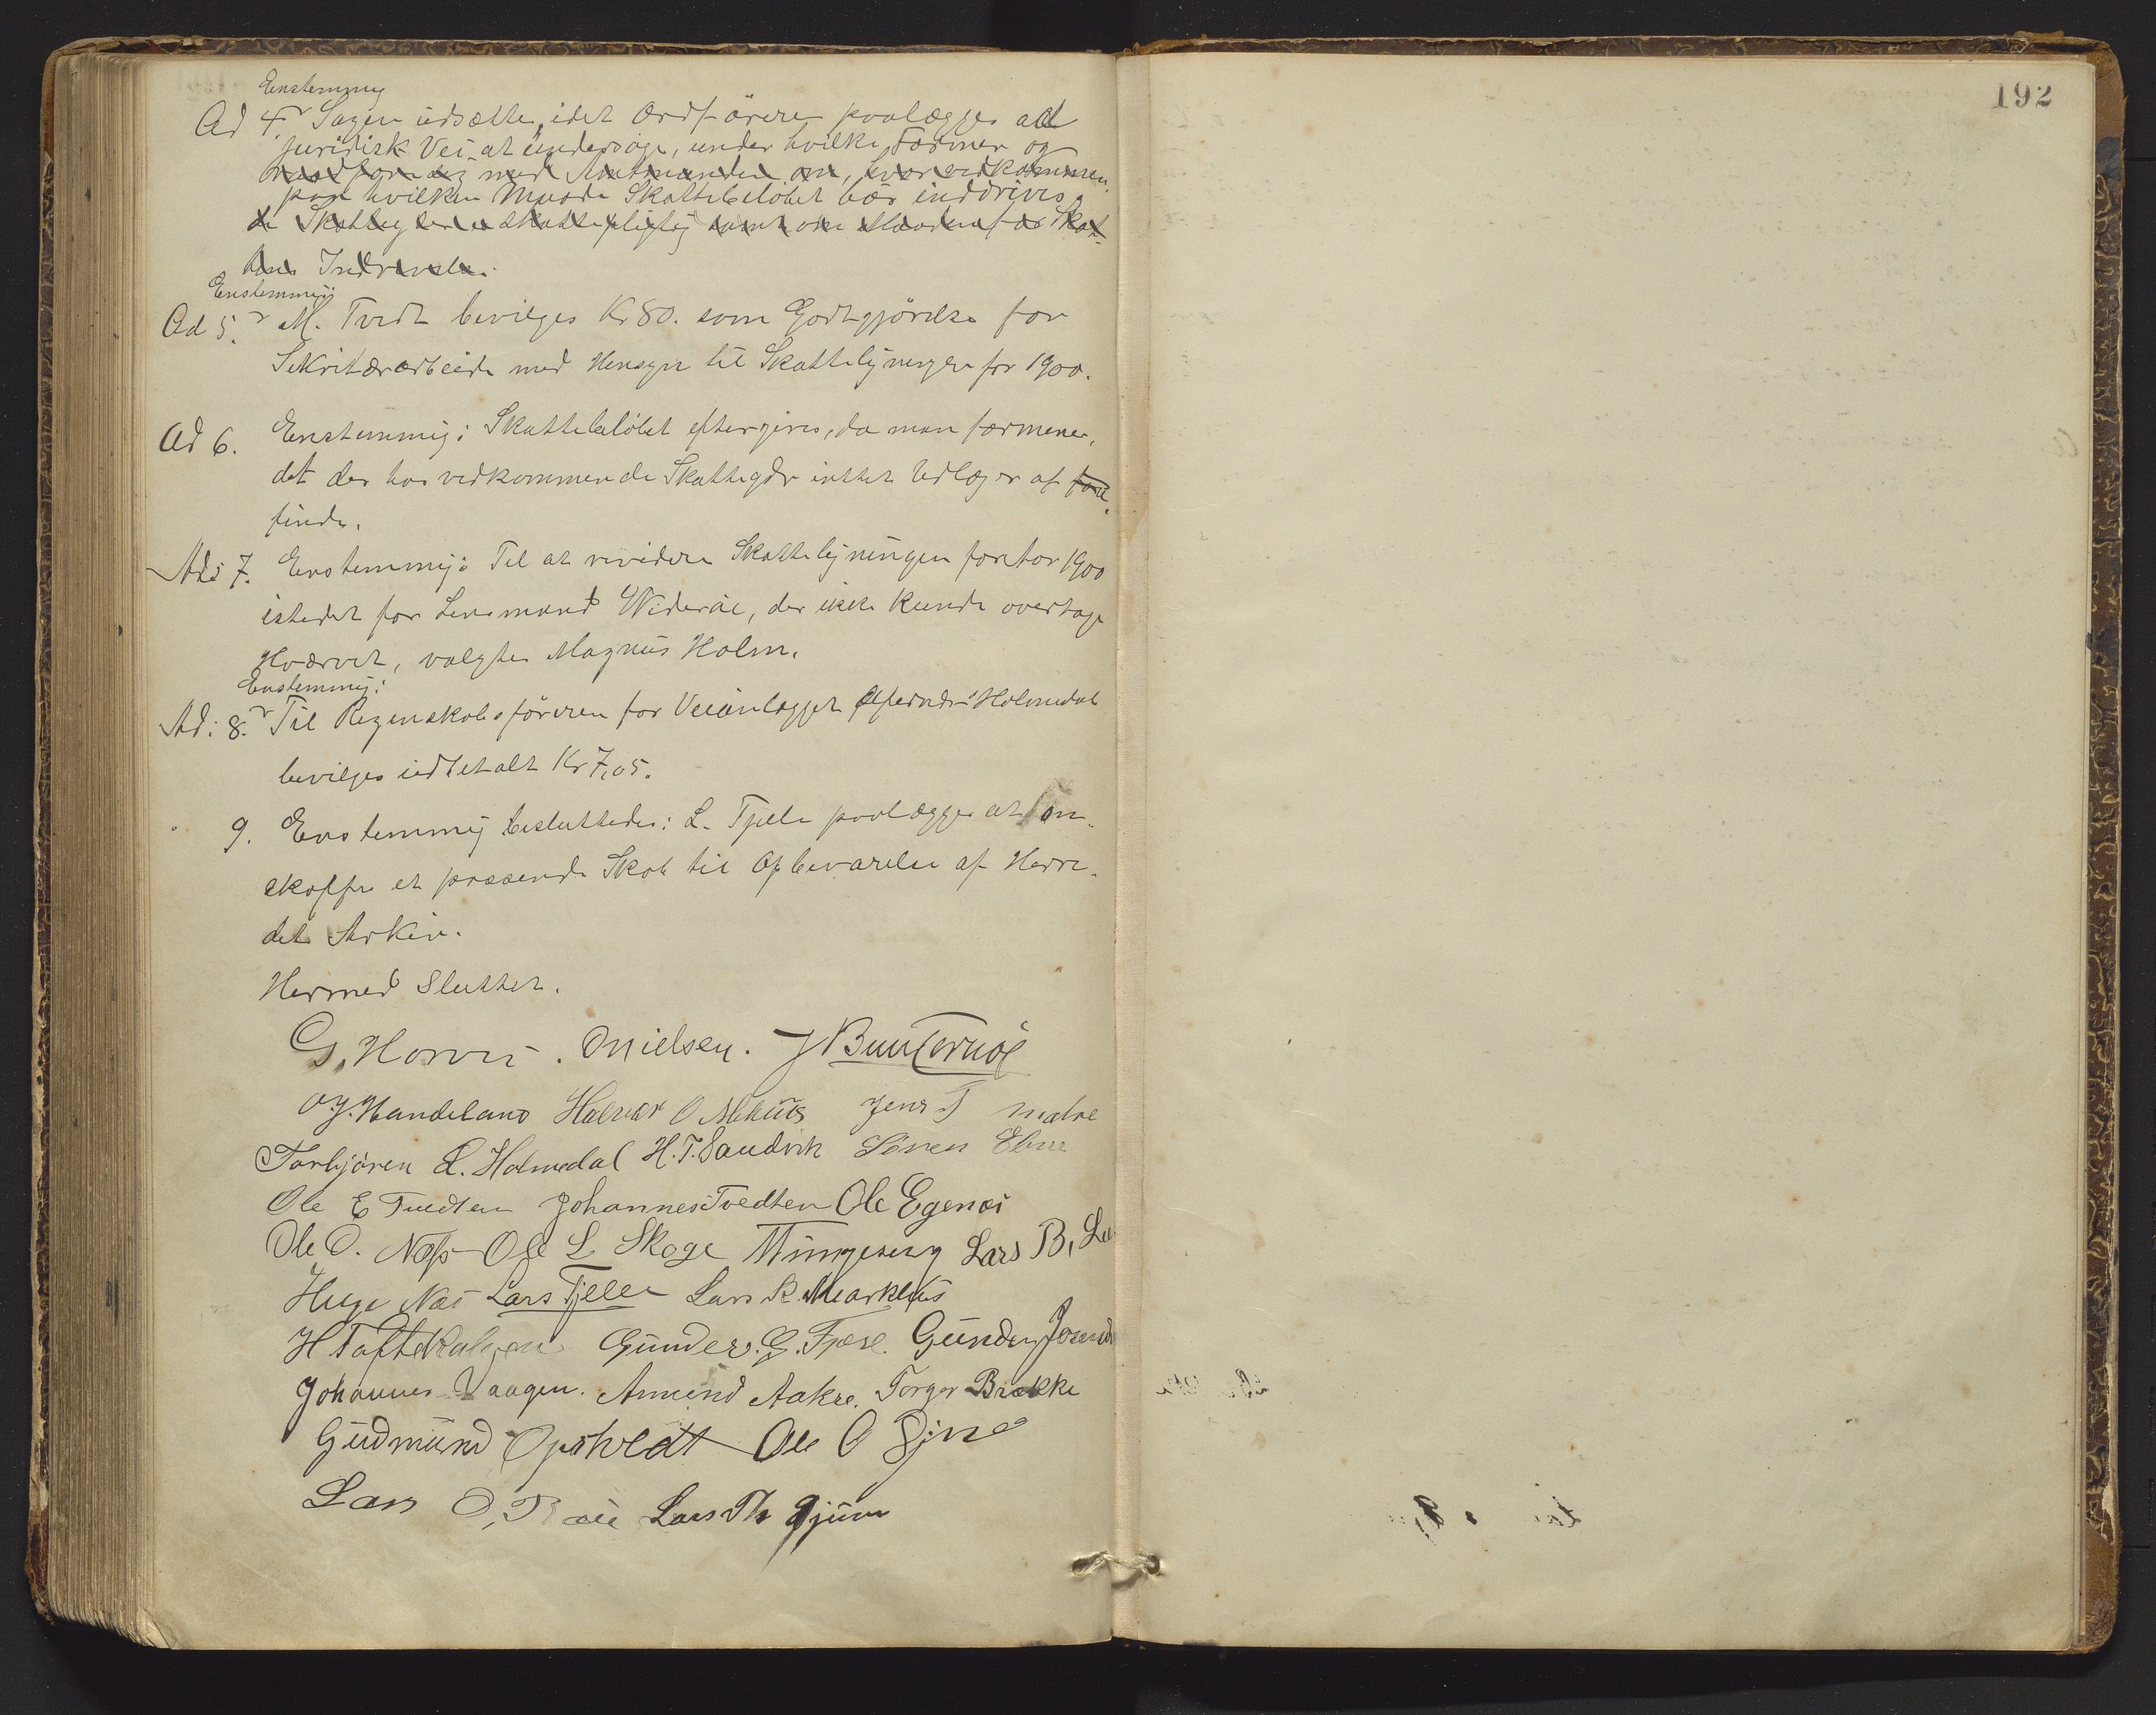 192
Enstemmig
Ad 4. Sagen udsættes, idet Ordföreren paalægges ad
juridisk Vei at undersöge, under hvilke Former og
med Amtmanden om, hvorvidt vedkommen-
paa hvilken Maade Skattebelöbet bör inddrives.
de Skatteyder er skattepligtig samt om Maaden for Skat-
tens Inddrivelse.
Enstemmig
Ad 5. M. Tvedt bevilges Kr 80. som Godtgjörelse for
Sekretærarbeide med Hensyn til Skatteligningen for 1900.
Ad 6. Enstemmig: Skattebelöbet eftergives, da man formener,
det der hos vedkommende Skatteyder intet Udlæg er at
finde.
Ad: 7. Enstemmig: Til at revidere Skatteligningen for 1900
istedet for Lensmand Wideröe, der ikke kunde overtage
Hvervet, valgtes Magnus Holm.
Enstemmig:
Ad: 8. Til Regnskabsföreren for Veianlægget Ølfernæs-Holmedal
bevilges udbetalt Kr 7,05.
9. Enstemmig besluttedes: L. Tjelle paalægges at an-
skaffe et passende Skab til Opbevarelse af Herre-
dets Arkiv.
Hermed Sluttet.
G. Horvei. O Nielsen. J Bunternöe
O J. Handeland Halvor O Mehus Jens J Matre
Torbjören L. Holmedal H. T. Sandvik Sören Ebne
Ole E Tvedten Johannes Tvedten Ole Egenæs
Ole O. Næss Ole L Skoge Lars B.
Huge Næs Lars Tjelle Lars R. Markhus
H Toftekalven Gunder. G. Fjære. Gunder
Johannes Vaagen. Anmund Aakre. Torger Brække
Gudmund Opshvedt Ole O
Lars O. Lars Th Gjuve